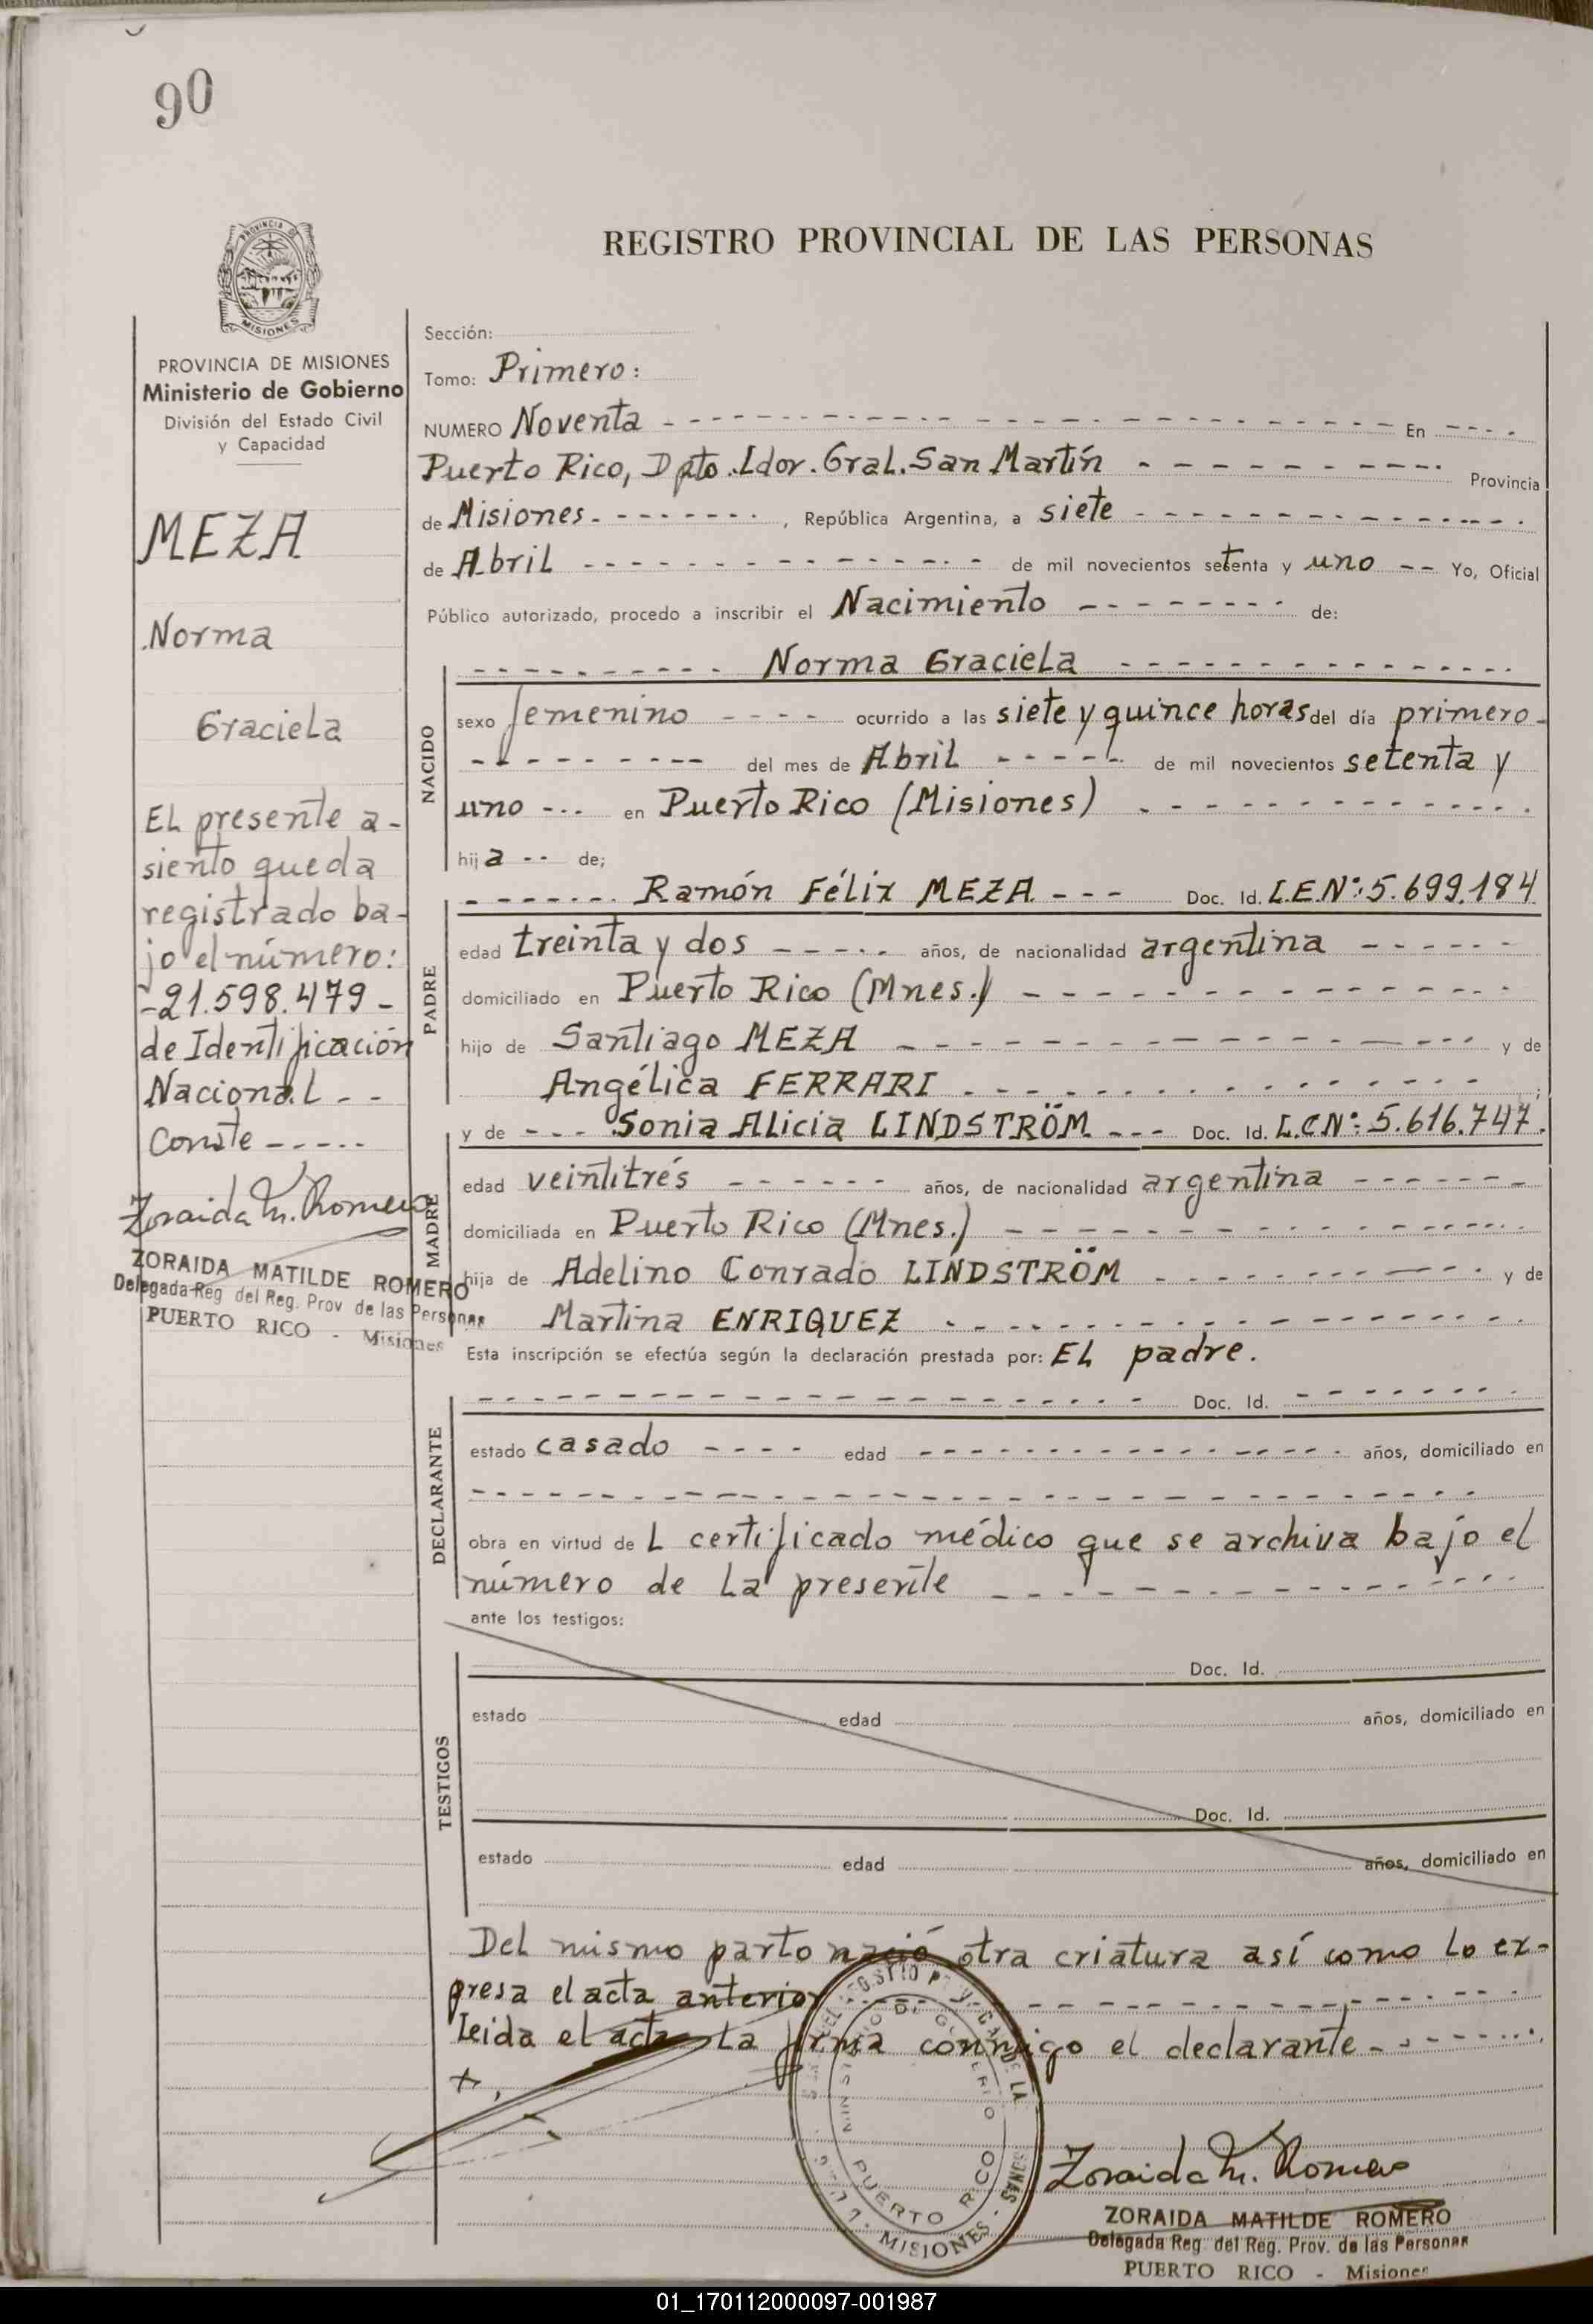 90
PROVINCIA DE
MISIONES
REGISTRO PROVINCIAL DE LAS PERSONAS
PROVINCIA DE MISIONES
Ministerio de Gobierno
División del Estado Civil
y Capacidad
MEZA
Norma
Graciela
El presente a-
siento queda
registrado ba-
jo el número:
-21.598.479-
de Identificación
Nacional - -
Conste - - - - -
Zoraida M. Romero
ZORAIDA MATILDE ROMERO
Delegada Reg. del Reg. Prov de las Personas
PUERTO RICO - Misiones
Sección:
Tomo: Primero:
NUMERO Noventa - - - En - - -
Puerto Rico, Dpto. Ldor. Gral. San Martín - - - Provincia
de Misiones. - - - , República Argentina, a siete - - -
de Abril - - - de mil novecientos setenta y uno -- Yo, Oficial
Público autorizado, procedo a inscribir el Nacimiento - - - de:
NACIDO
- - - Norma Graciela - - -
sexo femenino - - - ocurrido a las siete y quince horas del día primero-
- - - del mes de Abril - - - de mil novecientos setenta y
uno --- en Puerto Rico (Misiones) - - -
hija -- de;
PADRE
- - - Ramón Félix MEZA - - - Doc. Id. L.E.Nº: 5.699.184
edad treinta y dos - - - años, de nacionalidad argentina - - -
domiciliado en Puerto Rico (Mnes.) - - -
hijo de Santiago MEZA - - - y de
Angélica FERRARI - - - ;
MADRE
y de - - - Sonia Alicia LINDSTRÖM - - - Doc. Id. L.C.Nº: 5.616.747.
edad veintitrés - - - años, de nacionalidad argentina - - -
domiciliada en Puerto Rico (Mnes.) - - -
hija de Adelino Conrado LINDSTRÖM - - - y de
Martina ENRIQUEZ - - -
Esta inscripción se efectúa según la declaración prestada por: El padre.
DECLARANTE
- - - Doc. Id. - - -
estado casado - - - edad - - - años, domiciliado en
- - -
obra en virtud de L certificado médico que se archiva bajo el
número de La presente - - -
ante los testigos:
TESTIGOS
Doc. Id.
estado edad años, domiciliado en
Doc. Id.
estado edad años, domiciliado en
Del mismo parto nació otra criatura así como lo ex-
presa el acta anterior - - -
Leida el acta La firma conmigo el declarante - - -
PUERTO RICO
MISIONES
Zoraida M. Romero
ZORAIDA MATILDE ROMERO
Delegada Reg. del Reg. Prov. de las Personas
PUERTO RICO - Misiones
01_170112000097-001987